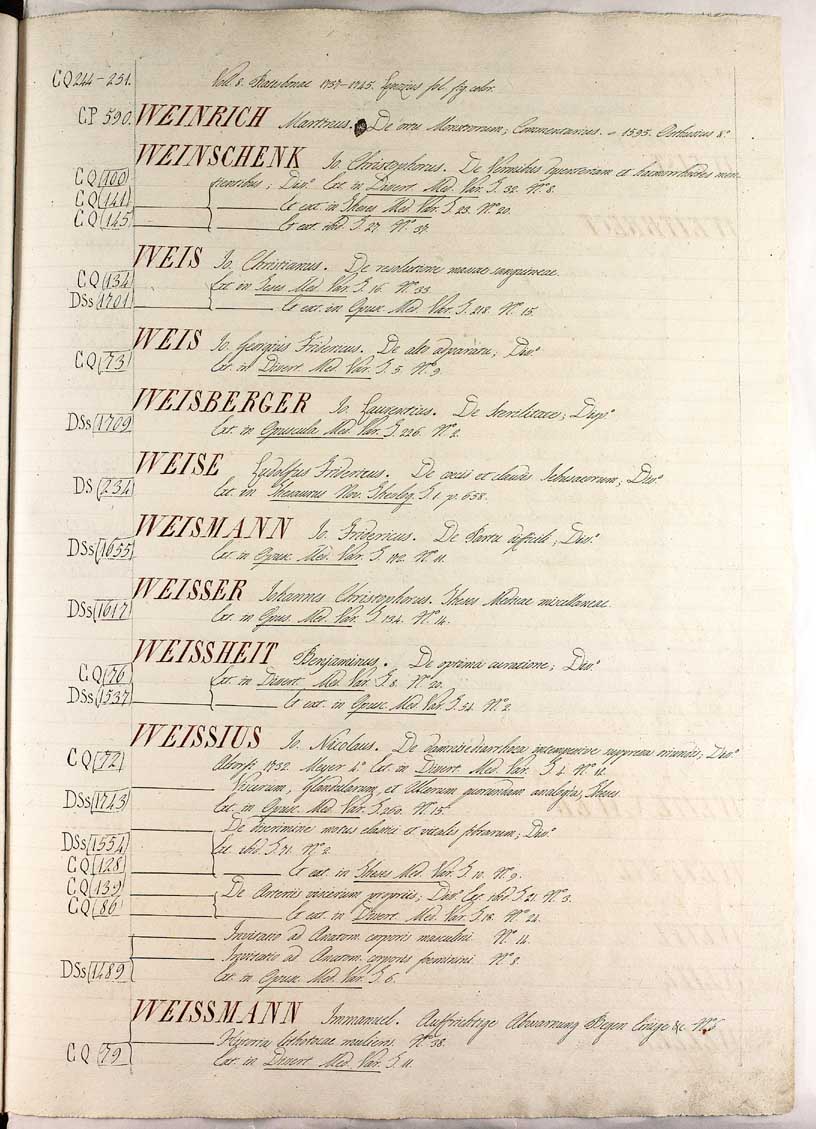 CQ 244-251. Voll 8. Ratisbonae 1737-1745. fol. fig. color.
CP 590. WEINRICH Martinus. De ortu Monstrorum; Commentarius. - 1595. 8.°
WEINSCHENK Io. Christophorus. De Vermibus et haemorrhoides men-
CQ (100) tientibus; Diss.° Ext. in Dissert. Med. Var. T. 32. N.° 8.
CQ (141) Et ext. in Theses Med. Var. T. 23. N.° 20.
CQ (145 Et ext. ibid. T. 27. N.° 37.
WEIS Io. Christianus. De resolutione massae sanguineae.
CQ (134 Ext. in Theses Med. Var. T. 16. N.° 33.
DSs (1701 Et ext. in Opusc. Med. Var. T. 218. N.° 15.
WEIS Io. Georgius Fridericus. De alto apparatu; Diss.°
CQ (73) Ext. in Dissert. Med. Var. T. 5. N.° 9.
WEISBERGER Io. Laurentius. De Sterilitate; Disp.°
DSs (1709 Ext. in Opuscula Med. Var. T. 226. N.° 2.
WEISE Ludolfus Fridericus. De coecis et claudis Iebusaeorum; Diss.°
DS (234) Ext. in Thesaurus Nov. Theolog. T. 1. p. 638.
WEISMANN Io. Fridericus. De Partu difficili; Diss.°
DSs (1655 Ext. in Opusc. Med. Var. T. 172. N.° 11.
WEISSER Iohannes Christophorus. Theses Medicae miscellaneae.
DSs (1617 Ext. in Opus. Med. Var. T. 134. N.° 14.
WEISSHEIT Benjaminus. De optima curatione; Diss.°
CQ (76 Ext. in Dissert. Med. Var. T. 8. N.° 20.
DSs (1537 Et ext. in Opusc. Med. Var. T. 54. N.° 2.
WEISSIUS Io. Nicolaus. De diarrhoea intempestive suppressa oriundis; Diss.°
CQ (72) Altorfii 1732. Meyer 4.° Ext. in Dissert. Med. Var. T. 4. N.° 11.
Viscerum, Glandularum, et Ulcerum quorundam analogia; Theses
DSs (1743 Ext. in Opusc. Med. Var. T. 260. N.° 15.
De discrimine motus elastici et vitalis fibrarum; Diss.°
DSs (1554 Ext. ibid. T. 71. N.° 2.
CQ (128 Et ext. in Theses Med. Var. T. 10. N.° 9.
CQ (139 De Arteriis viscerum propriis; Diss.° Ext. ibid. T. 21. N.° 3.
CQ (86 Et ext. in Dissert. Med. Var. T. 18. N.° 24.
Invitatio ad Anatom. corporis masculini N.° 14.
Invitatio ad Anatom. corporis feminini. N.° 8.
DSs (1489) Ext. in Opusc. Med. Var. T. 6.
WEISSMANN Immanuel. Auffrichtige Abwarnung Gegen Einige &c. N.°
Historia Lithotomiae mulieris. N.° 38.
CQ (79) Ext. in Dissert. Med. Var. T. 11.